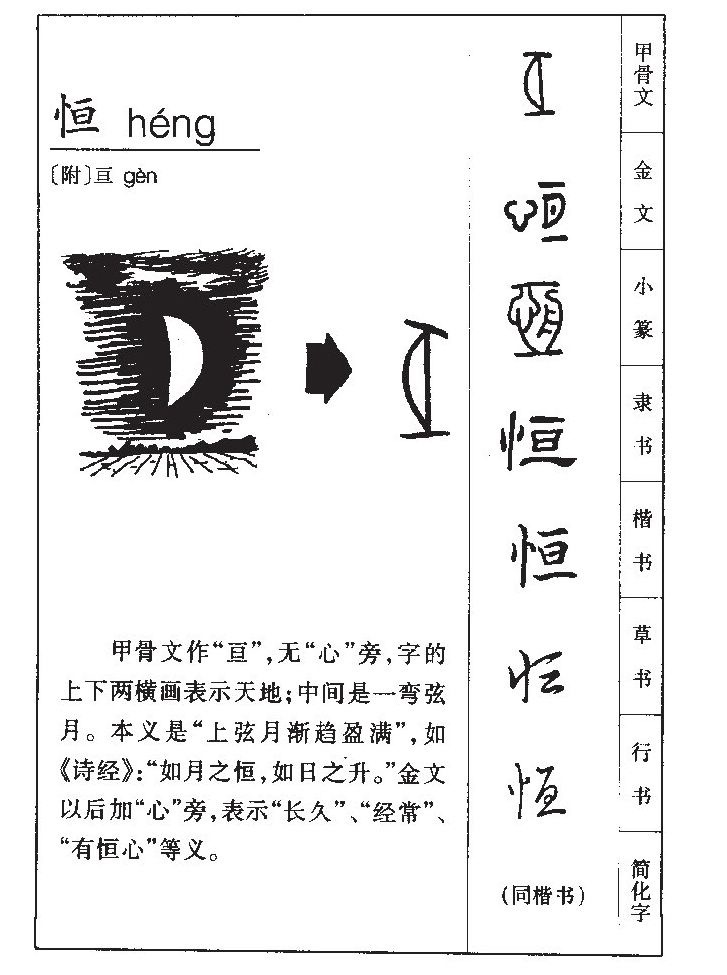 恒 héng
〔附〕亘 gèn
甲骨文作“亘”，无“心”旁，字的
上下两横画表示天地；中间是一弯弦
月。本义是“上弦月渐趋盈满”，如
《诗经》：“如月之恒，如日之升。”金文
以后加“心”旁，表示“长久”、“经常”、
“有恒心”等义。
亘
恒
恒
恒
恒
恒
恒
（同楷书）
甲骨文
金文
小篆
隶书
楷书
草书
行书
简化字